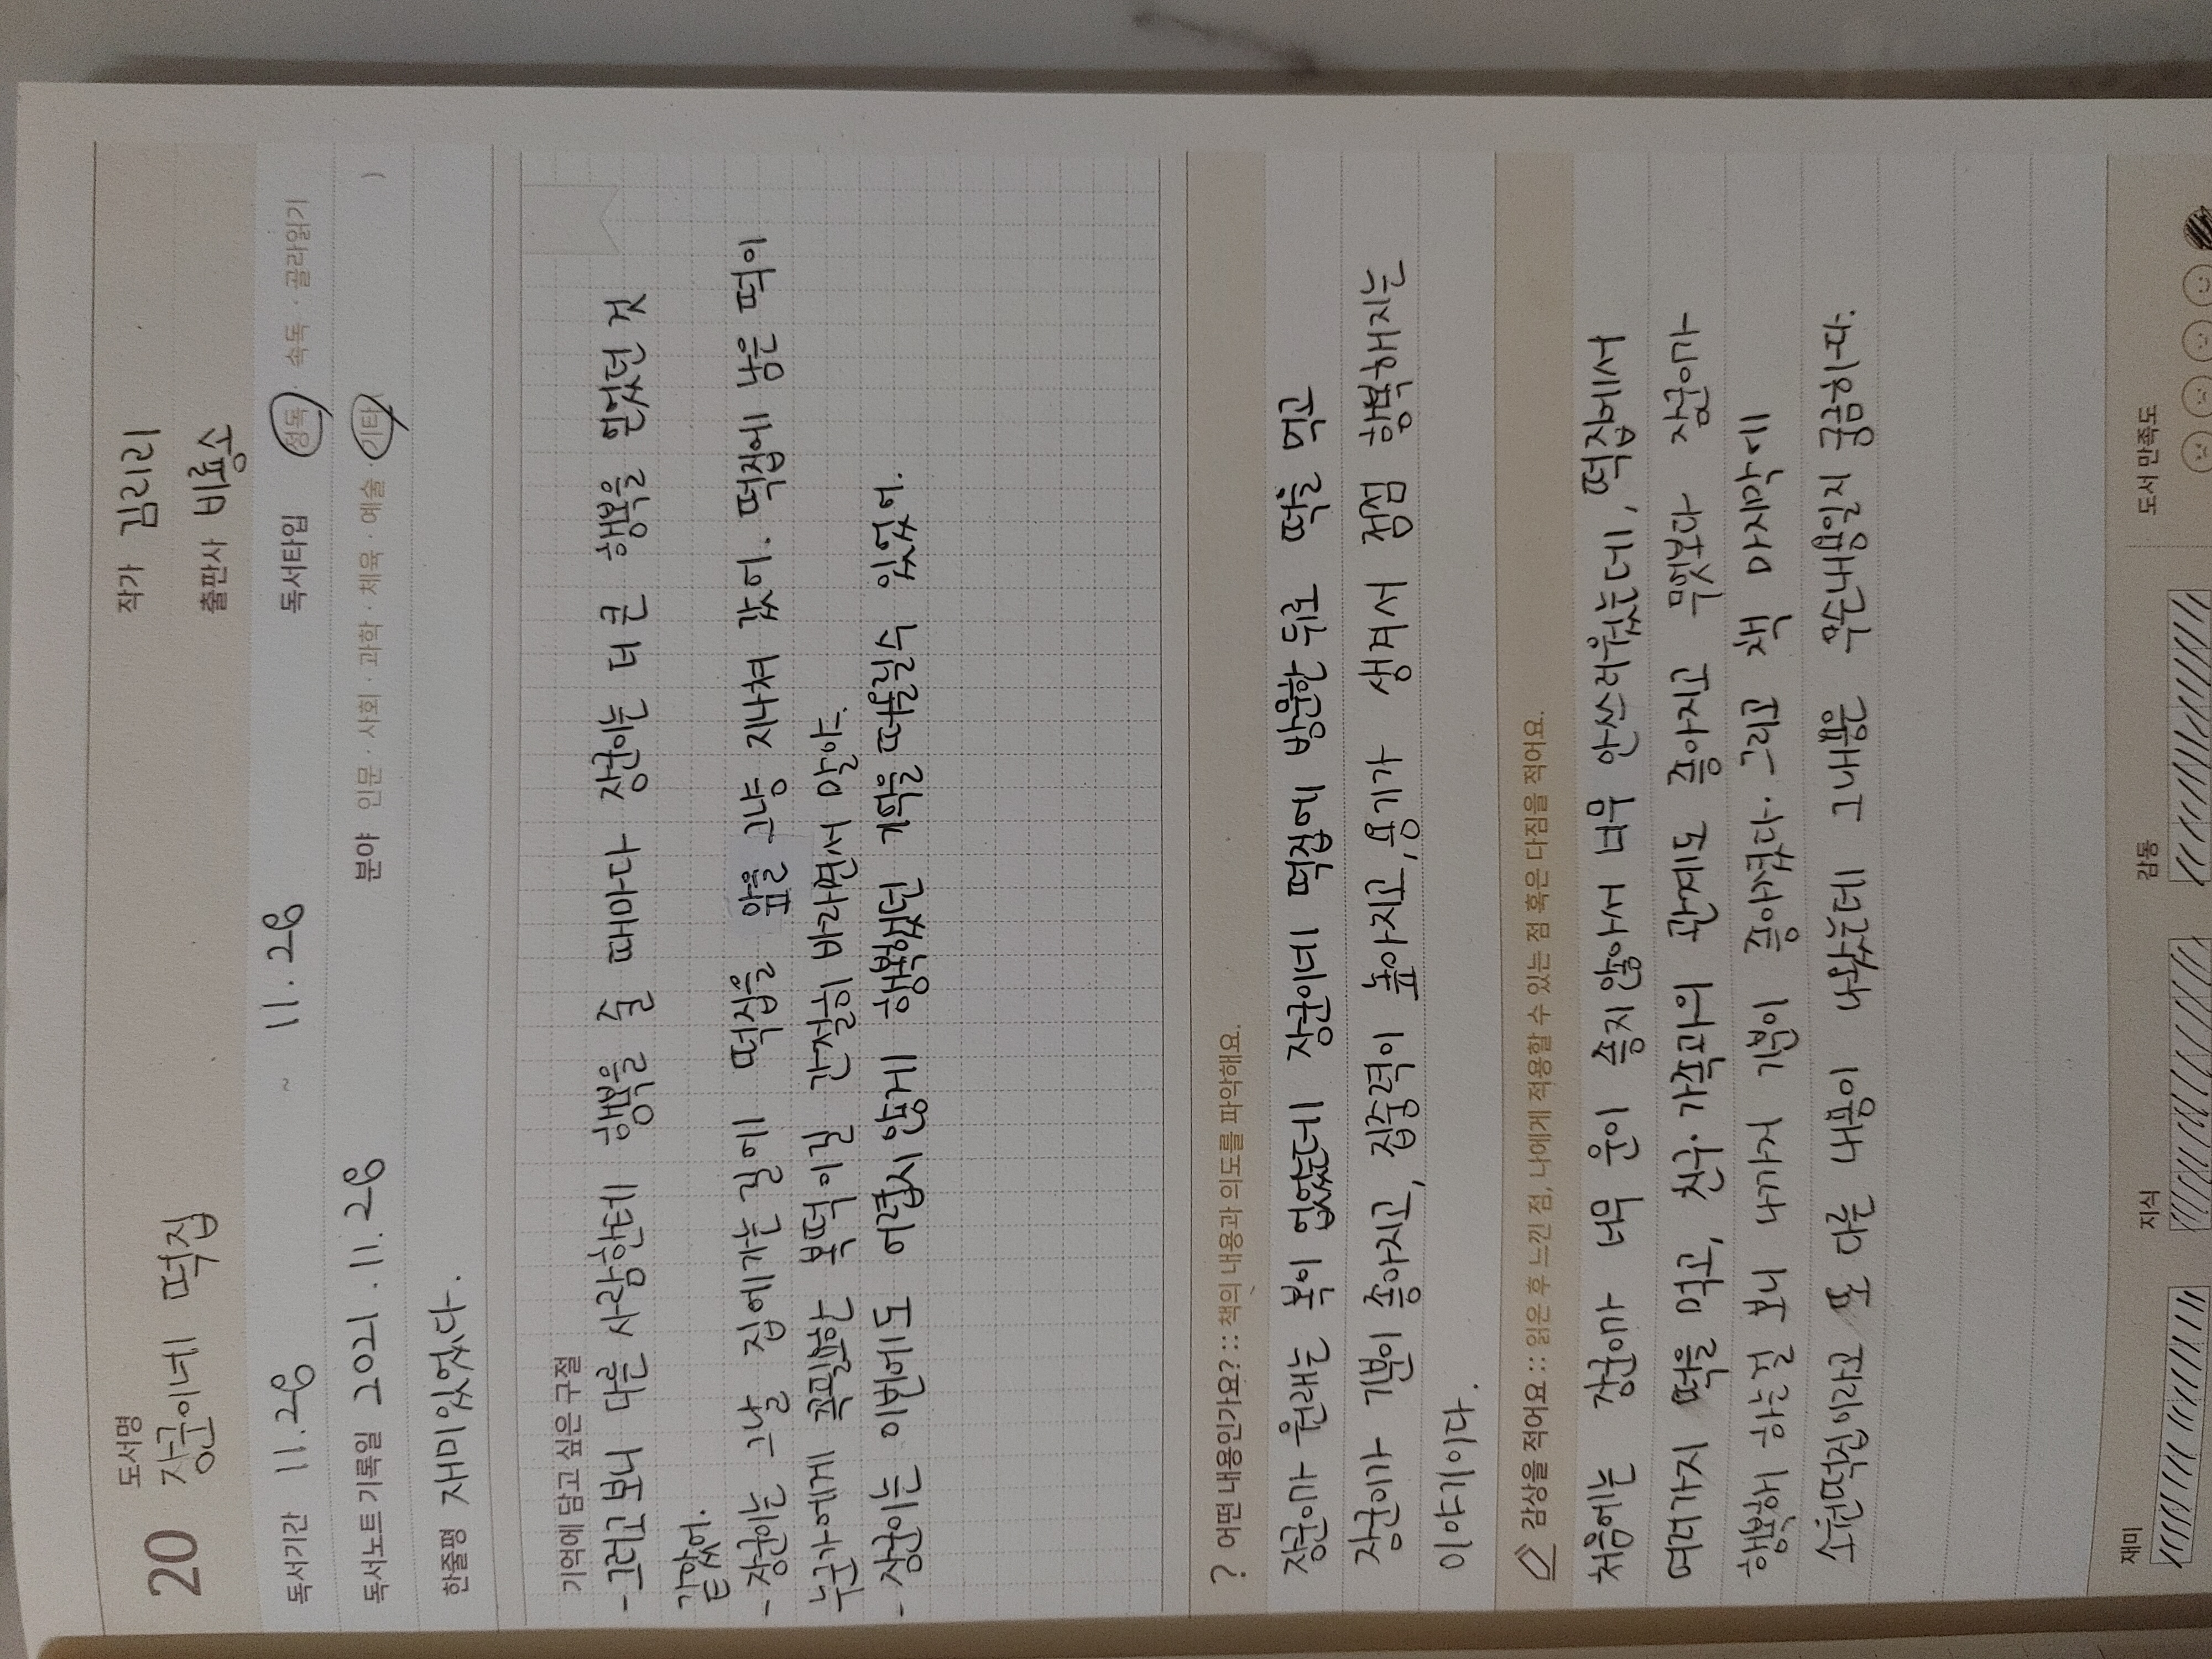 20 도서명 작가 김리리
장군이네 떡집
출판사 비룡소
독서기간 11.28 ~ 11.28 독서타입 정독 · 속독 · 골라읽기
독서노트 기록일 2021.11.28 분야 인문 · 사회 · 과학 · 체육 · 예술 · 기타( )
한줄평 재미있었다.
기억에 담고 싶은 구절
-그러고보니 다른 사람한테 행복을 줄 때마다 장군이는 더 큰 행복을 얻었던 것
같았어.
- 장군이는 그날 집에가는길에 떡집을 앞을 그냥 지나쳐 갔어. 떡집에 남은 떡이
누군가에게 꼭필요한 복떡이길 간절히 바라면서 말야.
- 장군이는 이번에도 어렵지 않게 행복했던 기억을 떠올릴수 있었어.
? 어떤 내용인가요? :: 책의 내용과 의도를 파악해요.
장군이가 원래는 복이 없었는데 장군이네 떡집에 방문한 뒤로 떡을 먹고
장군이가 기분이 좋아지고, 집중력이 높아지고, 용기가 생겨서 점점 행복해지는
이야기이다.
감상을 적어요 :: 읽은 후 느낀 점, 나에게 적용할 수 있는 점 혹은 다짐을 적어요.
처음에는 장군이가 너무 운이 좋지 않아서 너무 안쓰러웠는데, 떡집에서
여러가지 떡을 먹고, 친구·가족과의 관계도 좋아지고 무엇보다 장군이가
행복해 하는걸 보니 나까지 기분이 좋아졌다. 그리고 책 마지막에
소원떡집이라고 또 다른 내용이 나왔는데 그내용은 무슨내용일지 궁금하다.
재미 지식 감동 도서 만족도